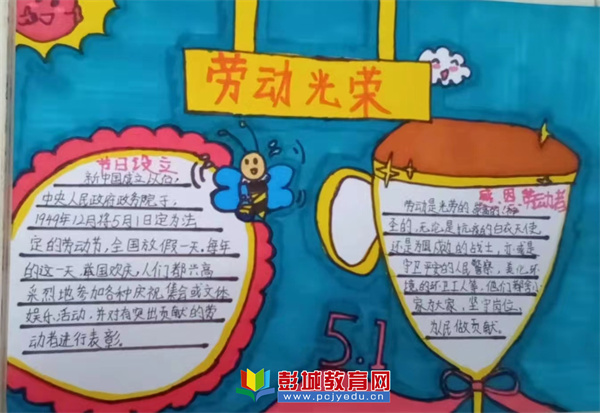 劳动光荣
节日设立
新中国成立以后,
中央人民政府政务院于
1949年12月将5月1日定为法
定的劳动节,全国放假一天。每年
的这一天,举国欢庆,人们都兴高
采烈地参加各种庆祝集会或文体
娱乐活动,并对有突出贡献的劳
动者进行表彰。
感恩劳动者
劳动是光荣的
圣的,无论是抗疫的白衣天使,
还是为国 的战士,亦或是
守卫平安的人民警察,美化环
境的环卫工人等,他们都舍小
家为大家,坚守岗位,
为民做贡献。
5.1
彭城教育网
www.pcjyedu.cn